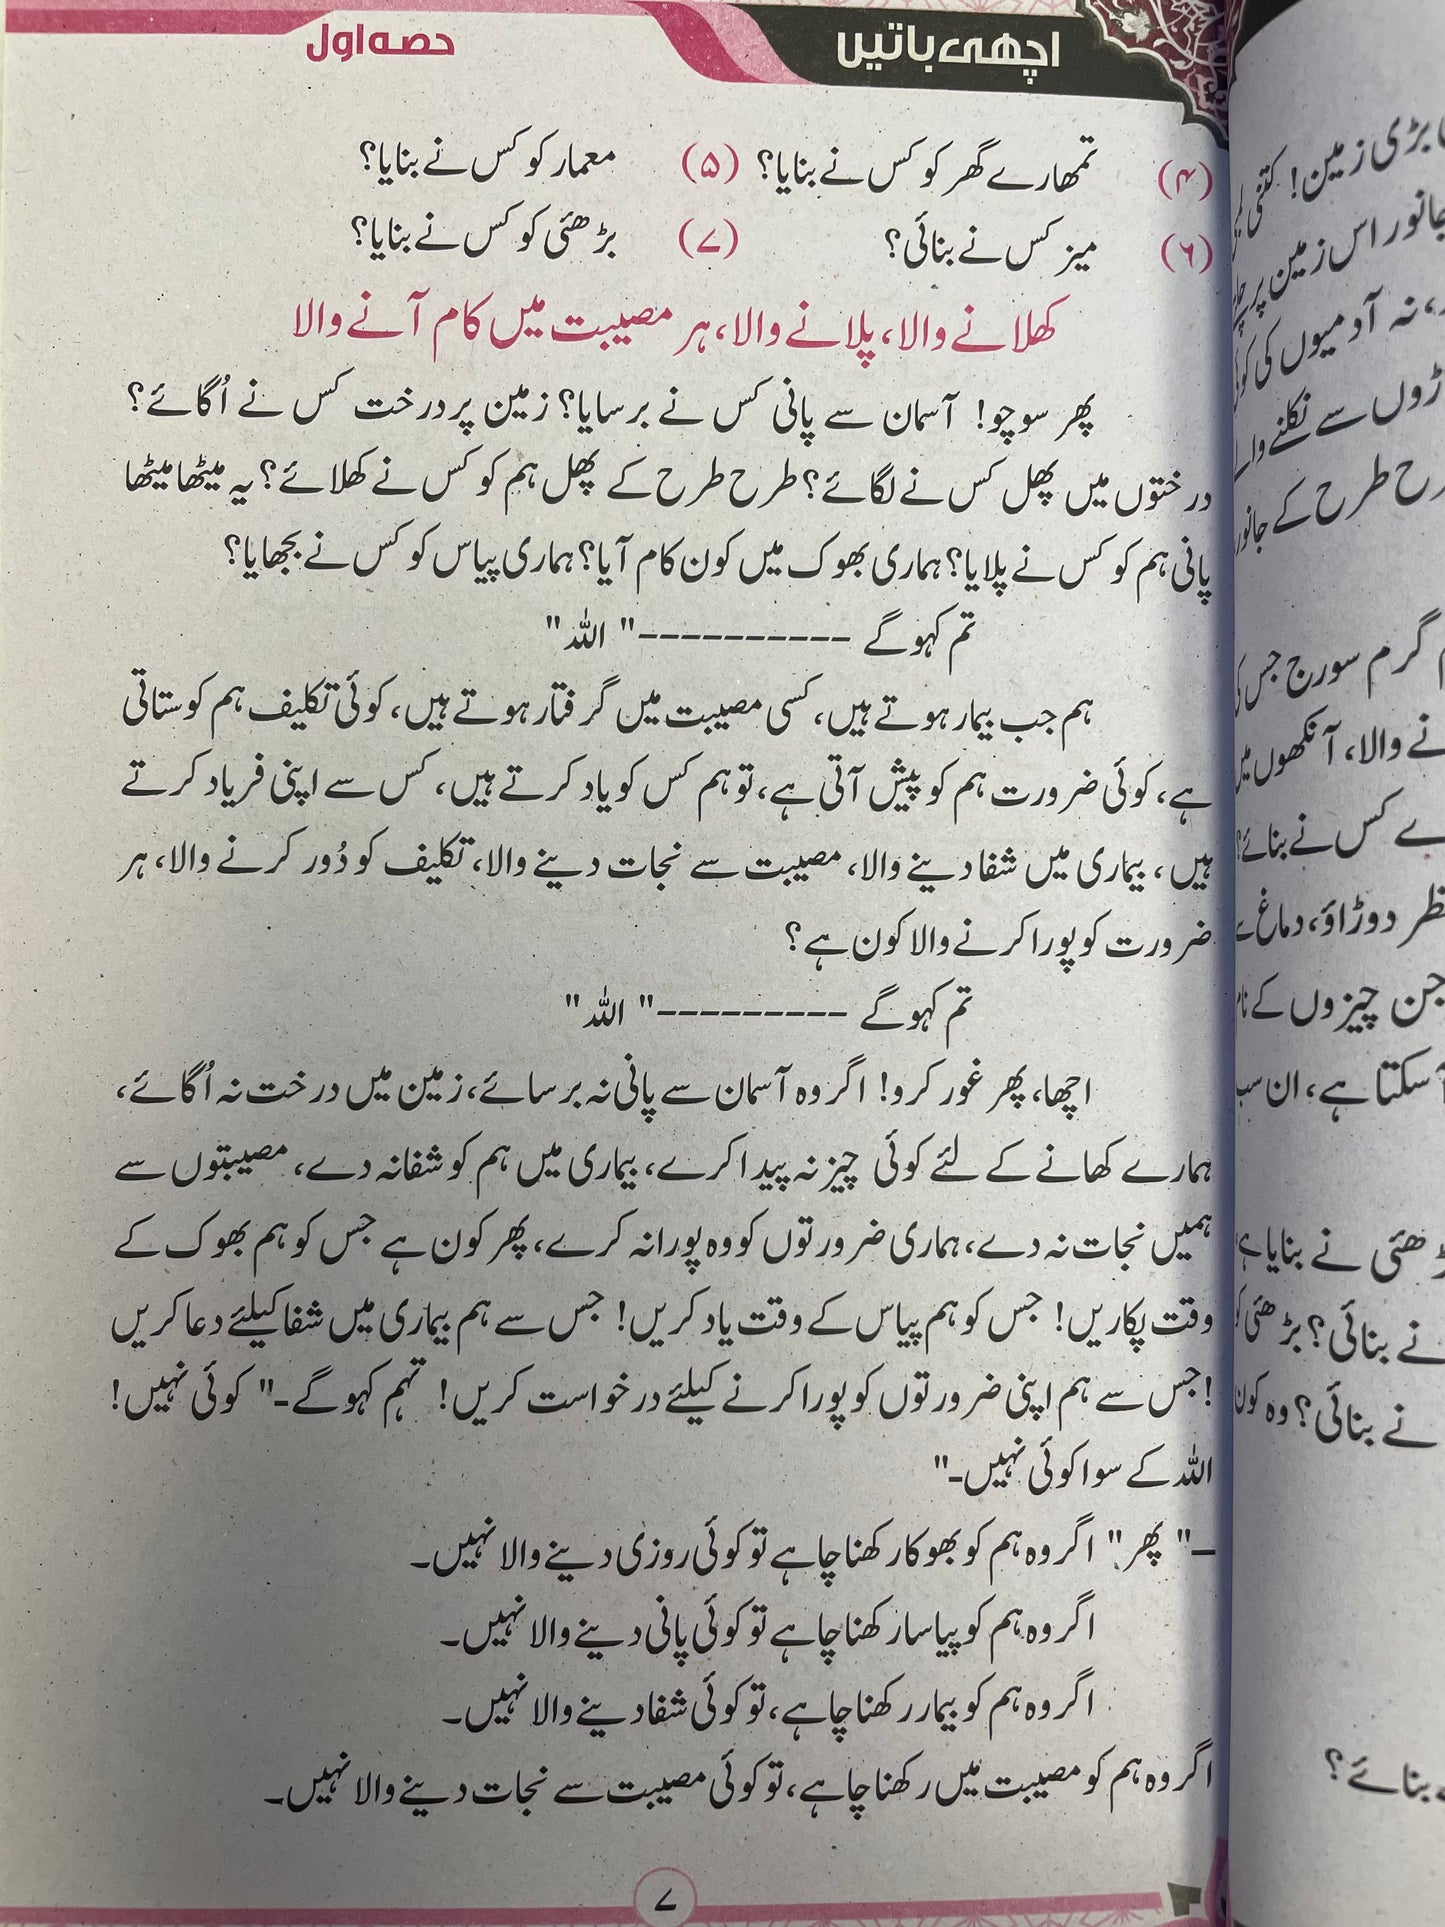 اچھی باتیں
حصہ اول
(۴) تمھارے گھر کو کس نے بنایا؟ (۵) معمار کو کس نے بنایا؟
(۶) میز کس نے بنائی؟ (۷) بڑھئی کو کس نے بنایا؟
کھلانے والا، پلانے والا، ہر مصیبت میں کام آنے والا
پھر سوچو! آسمان سے پانی کس نے برسایا؟ زمین پر درخت کس نے اُگائے؟
درختوں میں پھل کس نے لگائے؟ طرح طرح کے پھل ہم کو کس نے کھلائے؟ یہ میٹھا میٹھا
پانی ہم کو کس نے پلایا؟ ہماری بھوک میں کون کام آیا؟ ہماری پیاس کو کس نے بجھایا؟
تم کہو گے ----------" اللہ"
ہم جب بیمار ہوتے ہیں، کسی مصیبت میں گرفتار ہوتے ہیں، کوئی تکلیف ہم کو ستاتی
ہے، کوئی ضرورت ہم کو پیش آتی ہے، تو ہم کس کو یاد کرتے ہیں، کس سے اپنی فریاد کرتے
ہیں، بیماری میں شفا دینے والا، مصیبت سے نجات دینے والا، تکلیف کو دُور کرنے والا، ہر
ضرورت کو پورا کرنے والا کون ہے؟
تم کہو گے ---------" اللہ"
اچھا، پھر غور کرو! اگر وہ آسمان سے پانی نہ برسائے، زمین میں درخت نہ اُگائے،
ہمارے کھانے کے لئے کوئی چیز نہ پیدا کرے، بیماری میں ہم کو شفا نہ دے، مصیبتوں سے
ہمیں نجات نہ دے، ہماری ضرورتوں کو وہ پورا نہ کرے، پھر کون ہے جس کو ہم بھوک کے
وقت پکاریں! جس کو ہم پیاس کے وقت یاد کریں! جس سے ہم بیماری میں شفا کیلئے دعا کریں
!جس سے ہم اپنی ضرورتوں کو پورا کرنے کیلئے درخواست کریں! تہم کہو گے۔" کوئی نہیں!
اللہ کے سوا کوئی نہیں۔"
۔" پھر" اگر وہ ہم کو بھوکا رکھنا چاہے تو کوئی روزی دینے والا نہیں۔
اگر وہ ہم کو پیاسا رکھنا چاہے تو کوئی پانی دینے والا نہیں۔
اگر وہ ہم کو بیمار رکھنا چاہے، تو کوئی شفا دینے والا نہیں۔
اگر وہ ہم کو مصیبت میں رکھنا چاہے، تو کوئی مصیبت سے نجات دینے والا نہیں۔
۷
بڑی زمین! کتنی
جانور اس زمین پر
نہ آدمیوں کی
سے نکلنے والے
طرح کے جانور
گرم سورج جس کی
نے والا، آنکھوں میں
کس نے بنائے؟
دوڑاؤ، دماغ سے
جن چیزوں کے نام
آ سکتا ہے، ان سب
نے بنایا ہے
نے بنائی؟ بڑھئی کو
نے بنائی؟ وہ کون
بنائے؟